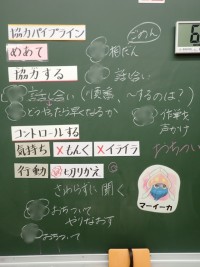 協力パイプライン
ごめん
めあて
相だん
協力する
話し合い
話し合い(順番、〜するのは?)
どうやったら早くなるか
作戦
声かけ
コントロールする
気持ち ×もんく ×イライラ
おちつい
行動 切りかえ
さわらずに聞く
マーイーカ
おちついて
やりなおす
おちついて
6